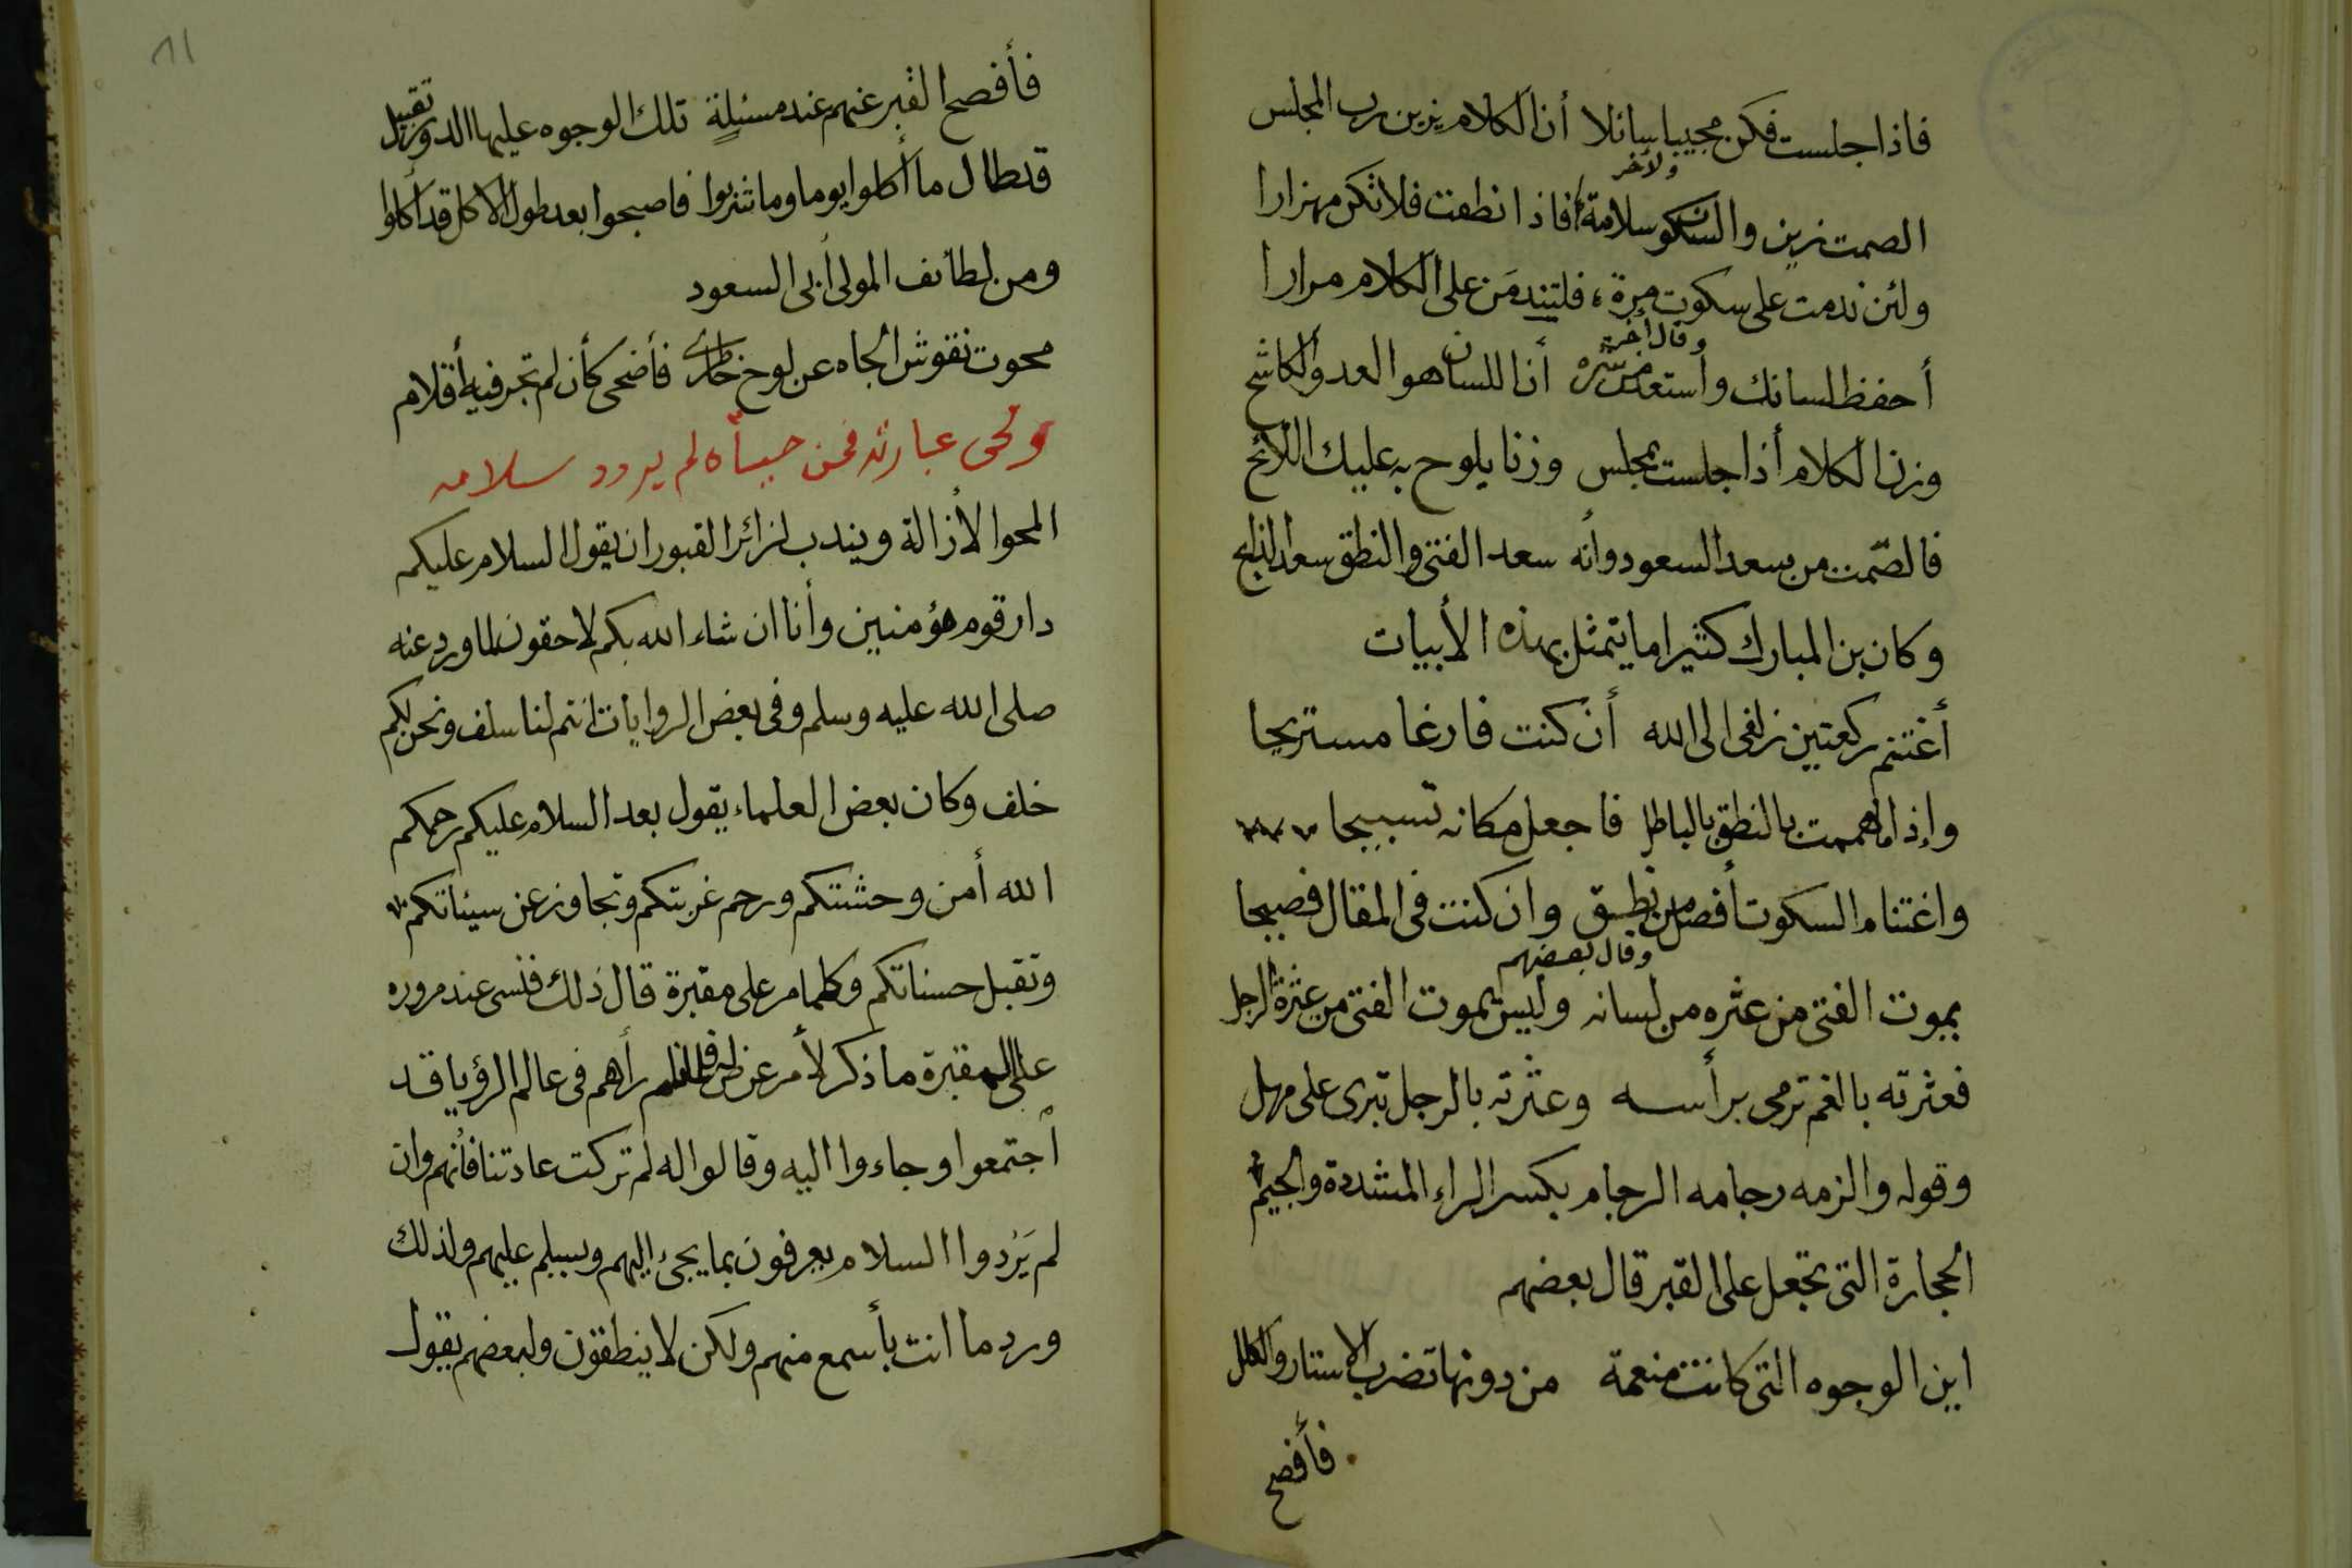 فاذا جلست فكن مجيبا سائلا أن الكلام يزين رب المجلس
ولآخر
الصمت زين والسكوت سلامة فاذا نطقت فلا تكن مهزارا
ولئن ندمت على سكوت مرة فلتندمن على الكلام مرارا
وقال آخر
أحفظ لسانك وأستعذ من شره أن اللسان هو العدو الكاشح
وزن الكلام أذا جلست بمجلس وزنا يلوح به عليك اللائح
فالصّمت من سعد السعود وأنه سعد الفتى والنطق سعد الذابح
وكان بن المبارك كثيرا ما يتمثل بهذه الأبيات
أغتنم ركعتين زلفى الى الله أن كنت فارغا مستريحا
وإذا ما هممت بالنطق بالباطل فاجعل مكانه تسبيحا
واغتنام السكوت أفضل من نطق وان كنت فى المقال فصيحا
وقال بعضهم
يموت الفتى من عثره من لسانه وليس يموت الفتى من عثرة الرجل
فعثرته بالفم ترمى برأسه وعثرته بالرجل تبرى على مهل
وقوله والزمه رجامه الرجام بكسر الراء المشددة والجيم
الحجارة التى تجعل على القبر قال بعضهم
اين الوجوه التى كانت منعمة من دونها تضرب الاستار والكلل
فأفصح
٨١
فأفصح القبر عنهم عند مسئلةٍ تلك الوجوه عليها الدود تقبيل
قد طال ما أكلوا يوما وما شربوا فاصبحوا بعد طول الاكل قد أكلوا
ومن لطائف المولى أبى السعود
محوت نقوش الجاه عن لوح خاطرى فأضحى كأن لم تجر فيه أقلام
المحو الأزالة ويندب لزائر القبور ان يقول السلام عليكم
دار قوم مؤمنين وأنا ان شاء الله بكم لاحقون لما ورد عنه
صلى الله عليه وسلم وفى بعض الروايات انتم لنا سلف ونحن لكم
خلف وكان بعض العلماء يقول بعد السلام عليكم رحمكم
الله أمن وحشتكم ورحم غربتكم وتجاوز عن سيئاتكم
وتقبل حسناتكم وكلما مر على مقبرة قال ذلك فنسى عند مروره
على المقبرة ما ذكر لأمر عن له فلما نام رأهم فى عالم الرؤيا قد
أجتمعوا وجاءوا اليه وقالوا له لم تركت عادتنا فأنهم وان
لم يَرُدوا السلام يعرفون بما يجئ اليهم ويسلم عليهم ولذلك
ورد ما انت بأسمع منهم ولكن لا ينطقون ولبعضهم يقول